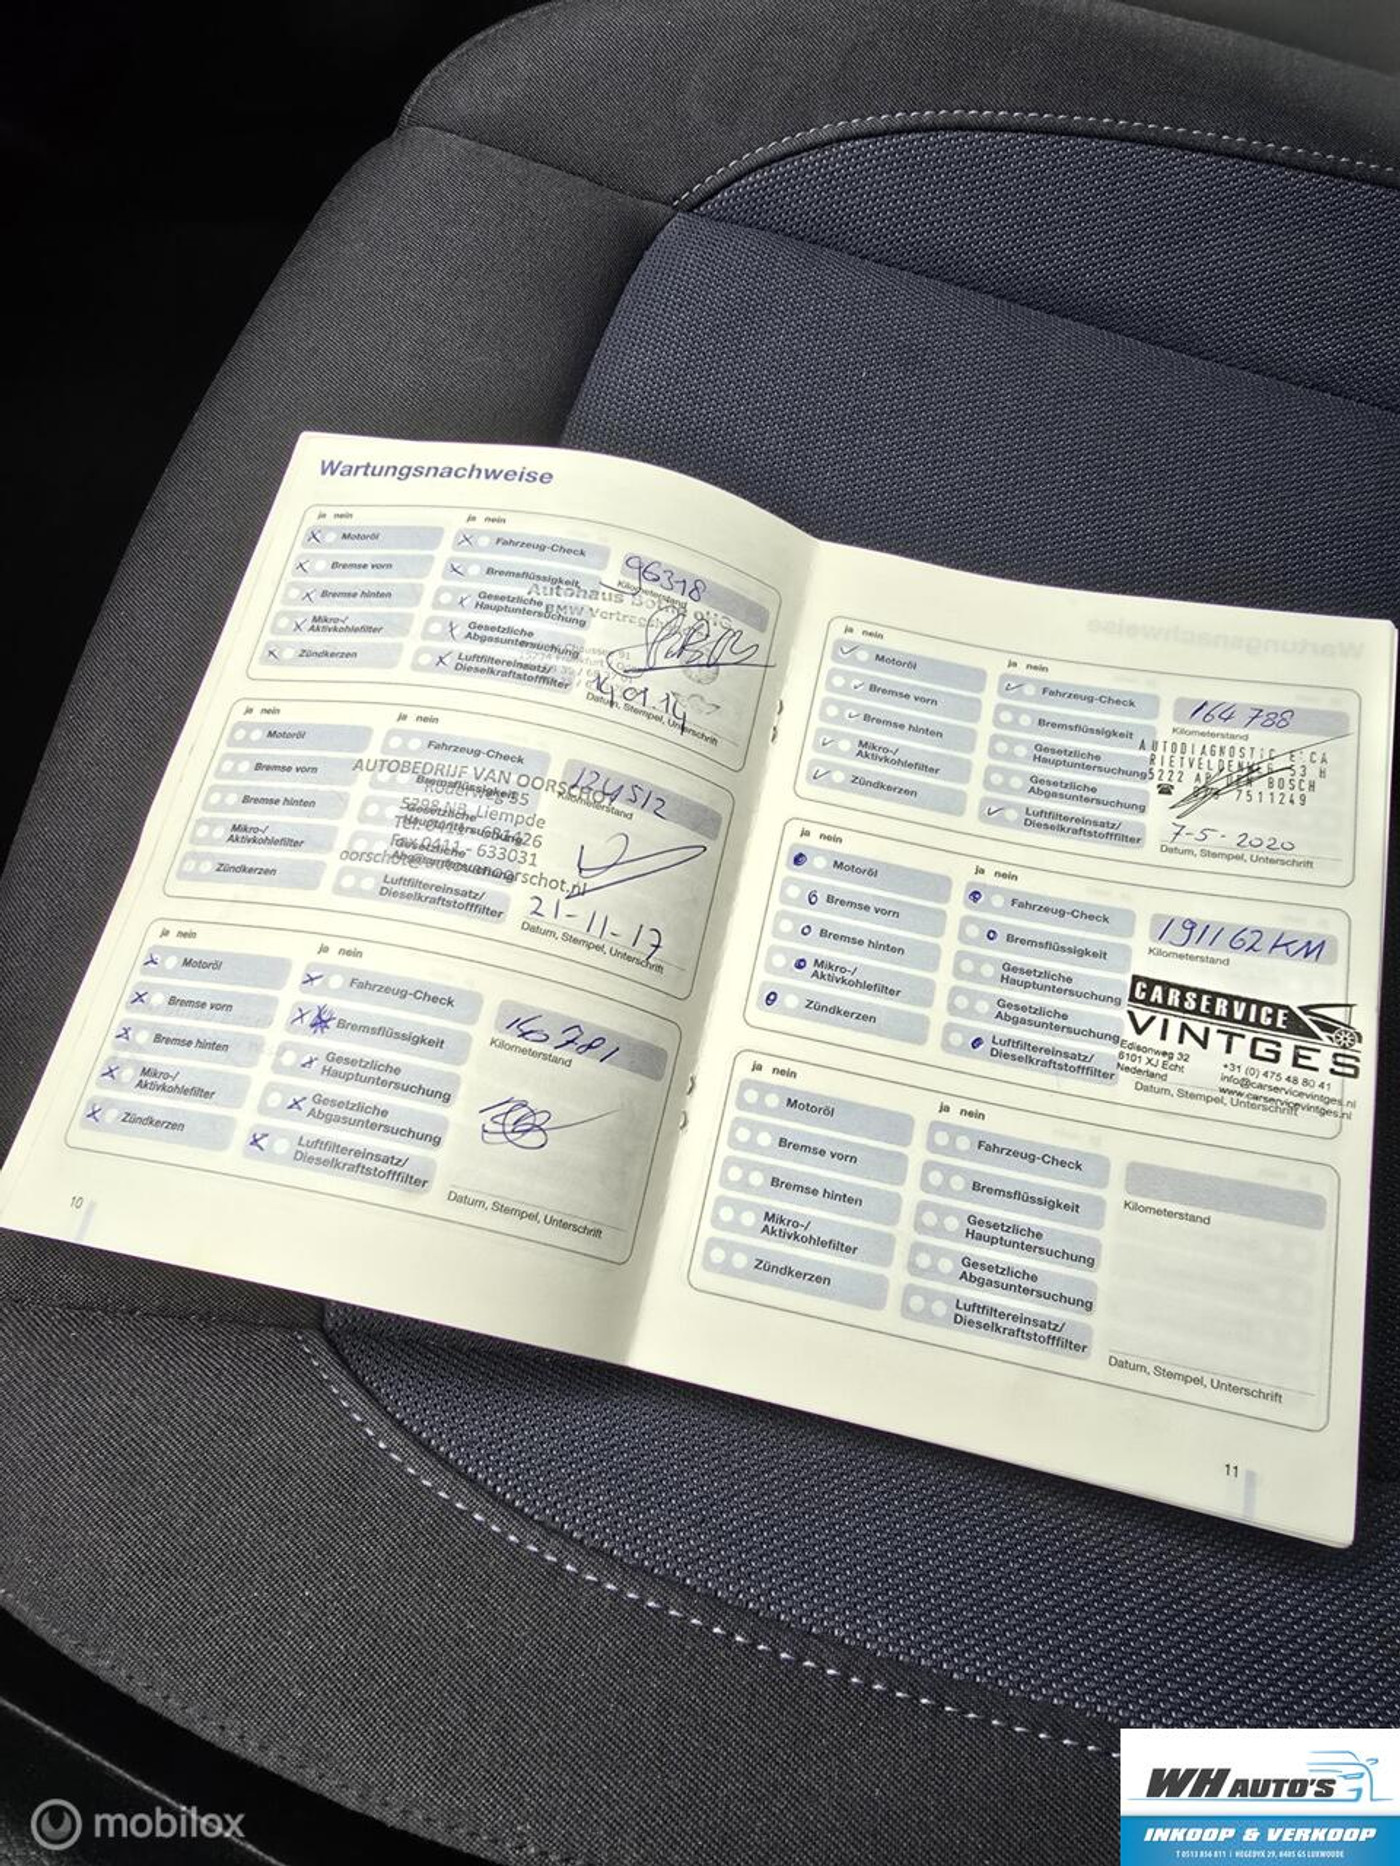 Wartungsnachweise
ja nein
ja nein
Motoröl
Fahrzeug-Check
96318
Kilometerstand
Bremse vorn
Bremsflüssigkeit
Bremse hinten
Gesetzliche
Hauptuntersuchung
Mikro-/
Aktivkohlefilter
Gesetzliche
Abgasuntersuchung
Zündkerzen
Luftfiltereinsatz/
Dieselkraftstofffilter
Autohaus
BMW
14.01.14
Datum, Stempel, Unterschrift
ja nein
ja nein
Motoröl
Fahrzeug-Check
124512
Kilometerstand
Bremse vorn
Bremsflüssigkeit
Bremse hinten
Gesetzliche
Hauptuntersuchung
Mikro-/
Aktivkohlefilter
Gesetzliche
Abgasuntersuchung
Zündkerzen
Luftfiltereinsatz/
Dieselkraftstofffilter
AUTOBEDRIJF VAN OORSCHOT
5298 NB Liempde
Fax 0411 - 633031
21-11-17
Datum, Stempel, Unterschrift
ja nein
ja nein
Motoröl
Fahrzeug-Check
140781
Kilometerstand
Bremse vorn
Bremsflüssigkeit
Bremse hinten
Gesetzliche
Hauptuntersuchung
Mikro-/
Aktivkohlefilter
Gesetzliche
Abgasuntersuchung
Zündkerzen
Luftfiltereinsatz/
Dieselkraftstofffilter
Datum, Stempel, Unterschrift
10
ja nein
ja nein
Motoröl
Fahrzeug-Check
164 788
Kilometerstand
Bremse vorn
Bremsflüssigkeit
Bremse hinten
Gesetzliche
Hauptuntersuchung
Mikro-/
Aktivkohlefilter
Gesetzliche
Abgasuntersuchung
Zündkerzen
Luftfiltereinsatz/
Dieselkraftstofffilter
AUTODIAGNOSTIC
RIETVELDENWEG 53 H
5222 AP DEN BOSCH
7511249
7-5-2020
Datum, Stempel, Unterschrift
ja nein
ja nein
Motoröl
Fahrzeug-Check
191162 KM
Kilometerstand
Bremse vorn
Bremsflüssigkeit
Bremse hinten
Gesetzliche
Hauptuntersuchung
Mikro-/
Aktivkohlefilter
Gesetzliche
Abgasuntersuchung
Zündkerzen
Luftfiltereinsatz/
Dieselkraftstofffilter
CARSERVICE
VINTGES
Edisonweg 32
6101 XJ Echt
Nederland
+31 (0) 475 48 80 41
info@carservicevintges.nl
www.carservicevintges.nl
Datum, Stempel, Unterschrift
ja nein
ja nein
Motoröl
Fahrzeug-Check
Kilometerstand
Bremse vorn
Bremsflüssigkeit
Bremse hinten
Gesetzliche
Hauptuntersuchung
Mikro-/
Aktivkohlefilter
Gesetzliche
Abgasuntersuchung
Zündkerzen
Luftfiltereinsatz/
Dieselkraftstofffilter
Datum, Stempel, Unterschrift
11
mobilox
WH AUTO'S
INKOOP & VERKOOP
T 0513 856 811 | HEGEDYK 29, 8405 GS LUXWOUDE